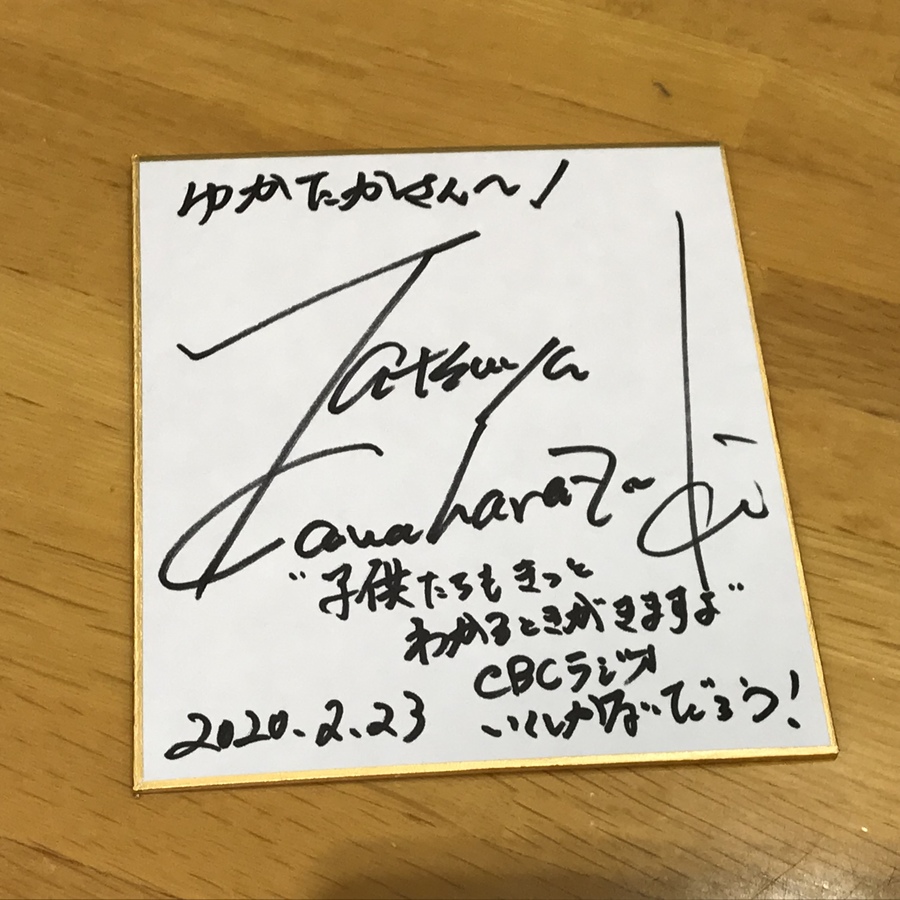 ゆかたかさん〜!
Tatsuya
Kawaharazuki
"子供たちもきっと
わかるときがきますよ"
CBCラジオ
いくしかないでしょう!
2020.2.23